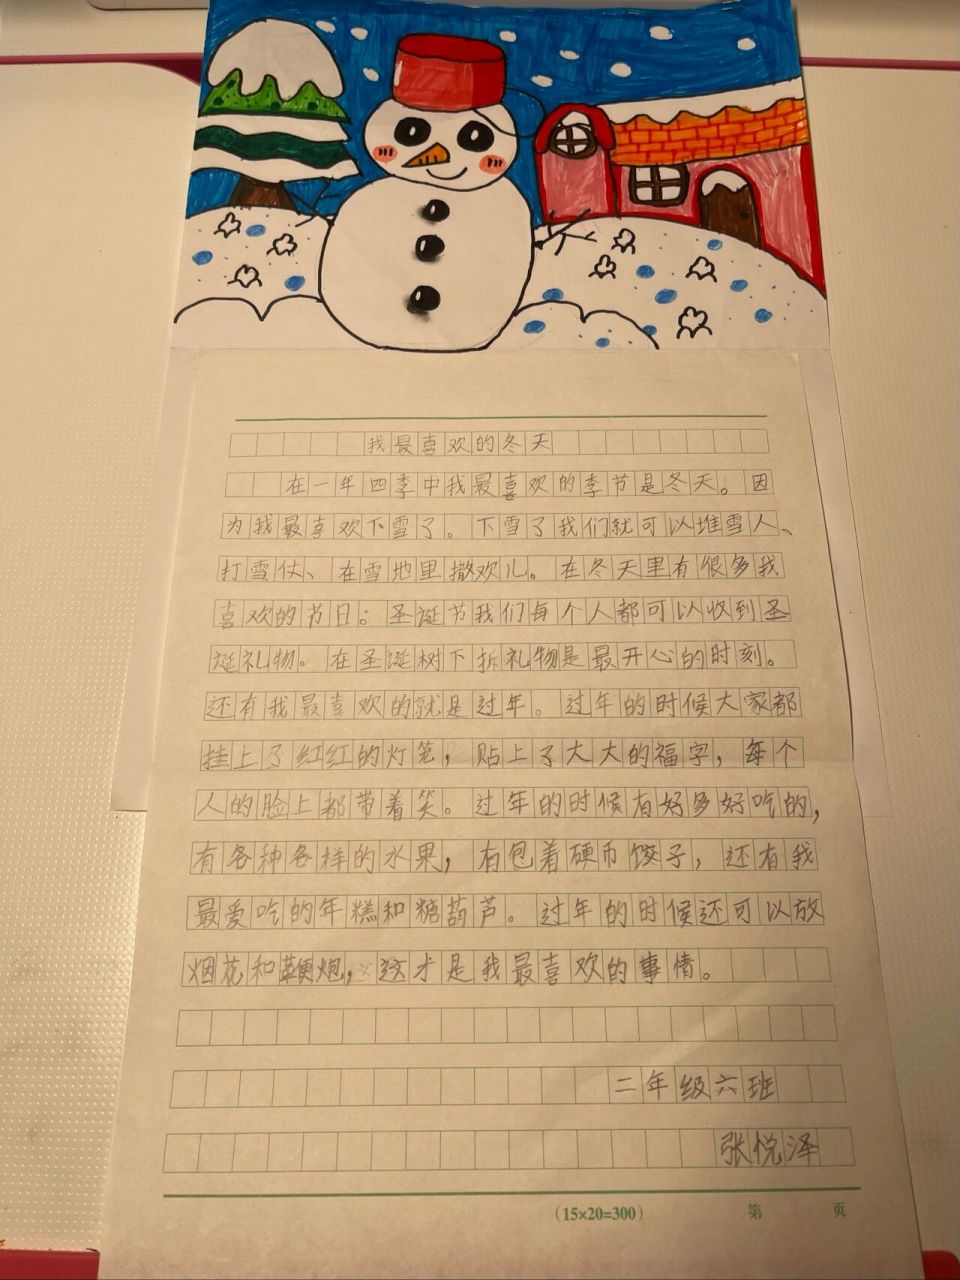 我最喜欢的冬天
在一年四季中我最喜欢的季节是冬天。因
为我最喜欢下雪了。下雪了我们就可以堆雪人、
打雪仗、在雪地里撒欢儿。在冬天里有很多我
喜欢的节日：圣诞节我们每个人都可以收到圣
诞礼物。在圣诞树下拆礼物是最开心的时刻。
还有我最喜欢的就是过年。过年的时候大家都
挂上了红红的灯笼，贴上了大大的福字，每个
人的脸上都带着笑。过年的时候有好多好吃的，
有各种各样的水果，有包着硬币饺子，还有我
最爱吃的年糕和糖葫芦。过年的时候还可以放
烟花和鞭炮，这才是我最喜欢的事情。
二年级六班
张悦泽
(15×20=300) 第 页